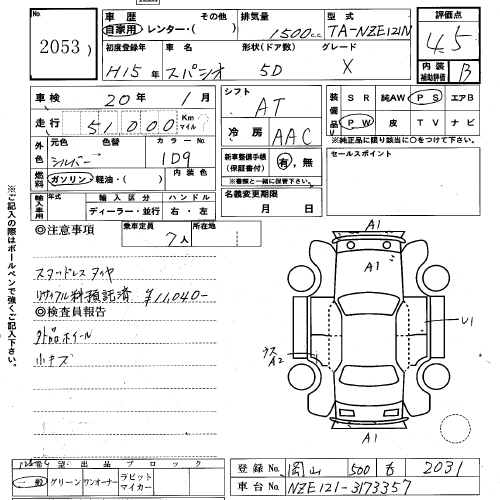 No. 2053)
車歴 その他 排気量 型式
自家用・レンター・( ) 1500cc TA-NZE121N
評価点 4.5
内装補助評価 B
初度登録年 車名 形状(ドア数) グレード
H15年 スパシオ 5D X
車検 20年 1月
走行 51,000 Km マイル
外色 元色 色替 カラーNo.
シルバー 1D9
燃料 ガソリン・軽油・( ) 内装色
輸入車用 年式 輸入区分 ハンドル
ディーラー・並行 右・左
シフト AT
冷房 AAC
新車整備手帳(保証書付) 有,無
※書類と一緒に保管下さい。
名義変更期限
月 日
装備品 SR 純AW PS エアB
PW 皮 TV ナビ
※純正品に限り該当に○をつけて下さい。
セールスポイント
◎注意事項 乗車定員 7人 所在地
スタッドレスタイヤ
リサイクル料預託済 ¥11,040-
◎検査員報告
社外品ホイール
小キズ
※ご記入の際はボールペンで強くご記入下さい。
A1
A1
U1
A2
A1
希望出品ブロック
一般 グリーン ワンオーナー ラビットマイカー
登録No. 岡山 500 2031
車台No. NZE121-3173357